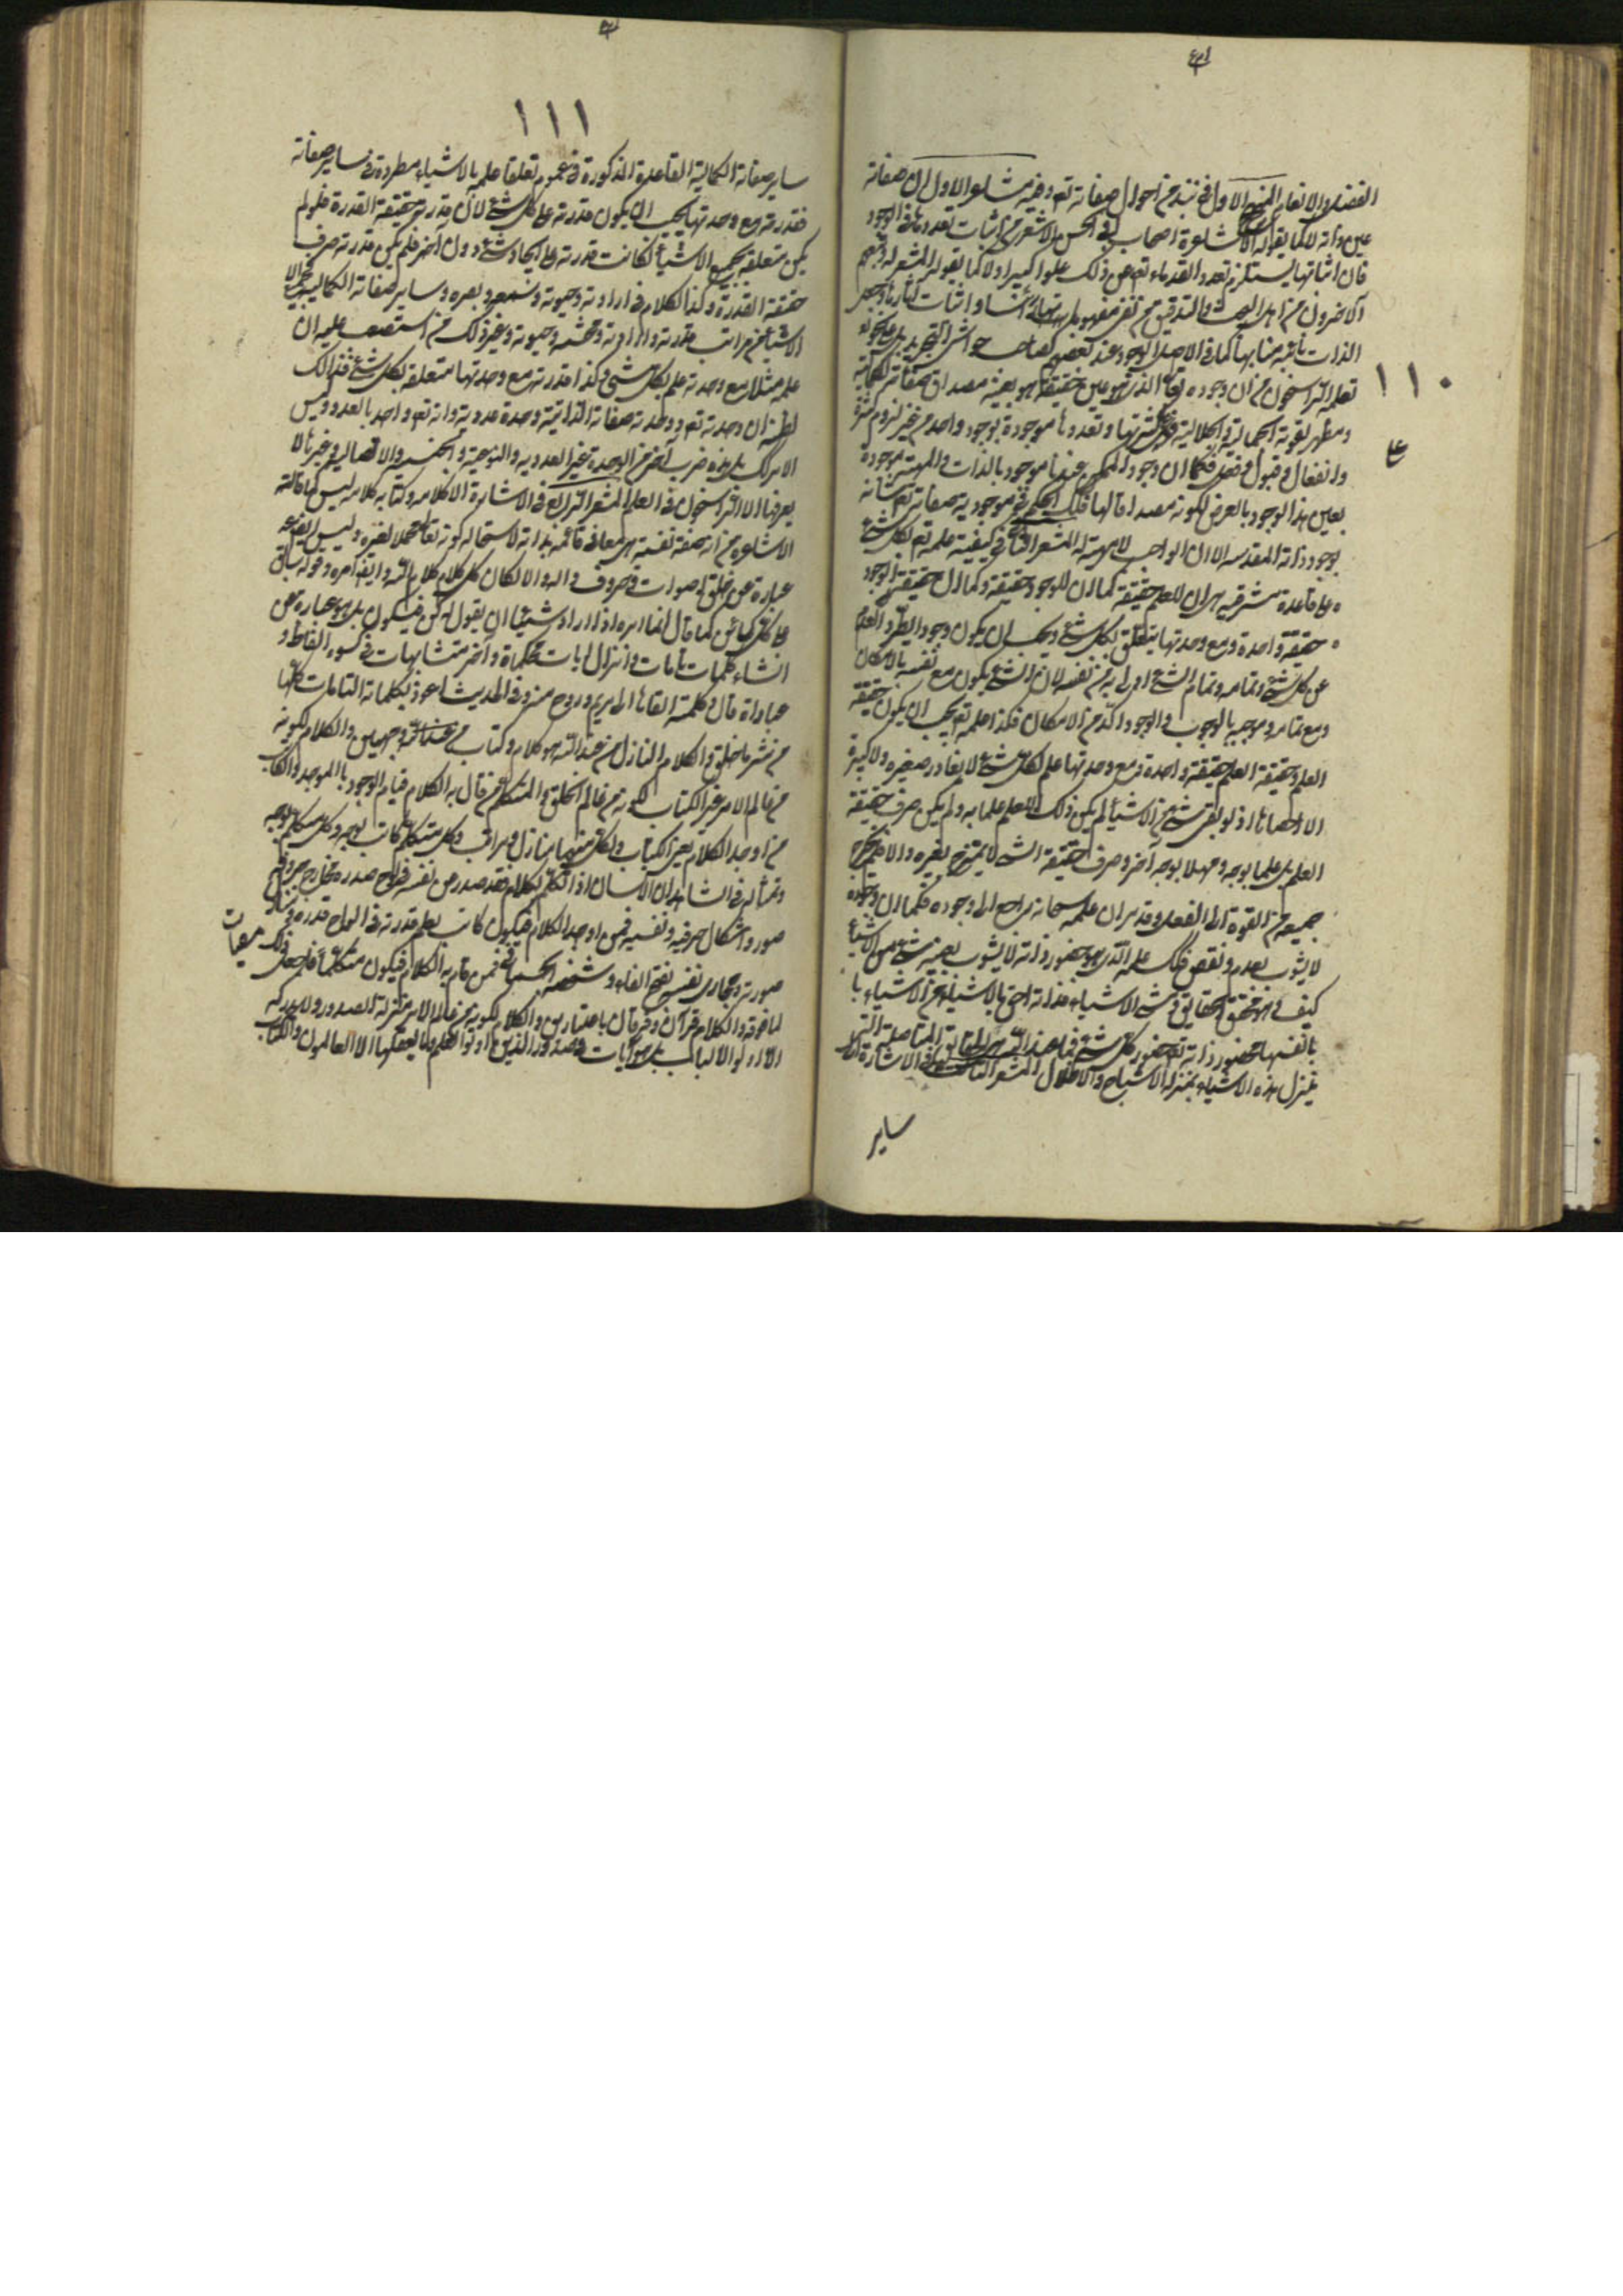 ١١٠
الفضل والانعام المنهج الاول في نبذ من احوال صفاته تع وفيه مشاعر الاول ان صفاته
عين ذاته لا كما يقوله الاشاعرة اصحاب ابي الحسن الاشعري من اثبات تعددها في الوجود
فان اثباتها يستلزم تعدد القدماء تع عن ذلك علوا كبيرا ولا كما يقوله المعتزلة وتبعهم
الآخرون من اهل البحث والتدقيق من نفي مفهوماتها رأسا واثبات آثارها وجعل
الذات نائبة منابها كما في الاصل الوجود عند بعضهم كصاحب حواشي التجريد بل على نحو
تعلمه الراسخون من ان وجوده تعالى الذي هو عين حقيقته هو بعينه مصداق صفاته الكمالية
ومظهر نعوته الجمالية والجلالية فهي على كثرتها وتعددها موجودة بوجود واحد من غير لزوم كثرة
وانفعال وقبول وفعل فكما ان وجود الممكن عندنا موجود بالذات والمهية موجودة
بعين هذا الوجود بالعرض لكونه مصداقا لها فكذلك الحكم في موجودية صفاته تع
بوجود ذاته المقدسة الا ان الواجب لا مهية له المشعر الثاني في كيفية علمه تع بكل شئ
على قاعدة مشرقية هي ان للعلم حقيقة كما ان للوجود حقيقة وكما ان حقيقة الوجود
حقيقة واحدة ومع وحدتها يتعلق بكل شئ ويجب ان يكون وجودا يطرد العدم
عن كل شئ وتمامه وتمام الشئ اولى به من نفسه لان الشئ يكون مع نفسه بالامكان
ومع تمامه وموجبه بالوجوب والوجوب آكد من الامكان فكذا علمه تع يجب ان يكون حقيقة
العلم وحقيقة العلم حقيقة واحدة ومع وحدتها علم بكل شئ لا يغادر صغيرة ولا كبيرة
الا احصاها اذ لو بقي شئ من الاشياء لم يكن ذلك العلم علما به ولم يكن صرف حقيقة
العلم بل علما بوجه وجهلا بوجه آخر وصرف حقيقة الشئ لا يمتزج بغيره والا لم يخرج
جميعه من القوة الى الفعل وقد مر ان علمه سبحانه راجع الى وجوده فكما ان وجوده
لا يشوب بعدم ونقص فكذلك علمه الذي هو حضور ذاته لا يشوب بغيبة شئ من الاشياء
كيف وهو محقق الحقايق ومشيئ الاشياء فذاته احق بالاشياء من الاشياء
بانفسها فحضور ذاته تع حضور كل شئ فما عند الله هي الحقايق المتأصلة التي
ينزل هذه الاشياء بمنزلة الاشباح والاظلال المشعر الثالث في الاشارة الى
ساير
١١١
ساير صفاته الكمالية القاعدة المذكورة في عموم تعلق علمه بالاشياء مطردة في ساير صفاته
فقدرته مع وحدتها يجب ان يكون قدرة على كل شئ لان قدرته حقيقة القدرة فلو لم
يكن متعلقة بجميع الاشياء لكانت قدرته على ايجاد شئ دون آخر فلم يكن قدرته صرف
حقيقة القدرة وكذا الكلام في ارادته وحيوته وسمعه وبصره وساير صفاته الكمالية فجميع
الاشياء من مراتب قدرته وارادته ومحبته وحيوته وغير ذلك من استصعب عليه ان
علمه مثلا مع وحدته علم بكل شئ وكذا قدرته مع وحدتها متعلقة بكل شئ فذلك
لظنه ان وحدته تع ووحدة صفاته الذاتية وحدة عددية وانه تع واحد بالعدد وليس
الامر كذلك بل هذه ضرب آخر من الوحدة غير العددية والنوعية والجنسية والاتصالية وغيرها لا
يعرفها الا الراسخون في العلم المشعر الرابع في الاشارة الى كلامه وكتابه كلامه ليس كما قالته
الاشاعرة من انه صفة نفسية هي معان قائمة بذاته لاستحالة كونه تعالى محلا لغيره وليس ايضا
عبارة عن خلق اصوات وحروف دالة والا لكان كل كلام كلام الله وايضا امره وقوله سابق
على كل كائن كما قال انما امره اذا اراد شيئا ان يقول له كن فيكون بل هو عبارة عن
انشاء كلمات تامات وانزال آيات محكمات واخر متشابهات في كسوة الفاظ و
عبارات قال وكلمته القاها الى مريم وروح منه وفي الحديث اعوذ بكلمات الله التامات كلها
من شر ما خلق والكلام النازل من عند الله هو كلام وكتاب من وجهين والكلام لكونه
من عالم الامر غير الكتاب لكونه من عالم الخلق والمتكلم من قام به الكلام قيام الوجود بالموجد والكاتب
من اوجد الكلام يعني الكتاب ولكل منهما منازل ومراتب وكل متكلم كاتب بوجه وكل كاتب متكلم بوجه
ومثاله في الشاهد ان الانسان اذا تكلم بكلام فقد صدر عن نفسه في لوح صدره ومخارج حروفه
صور واشكال حرفية ونفسه فمن اوجد الكلام فيكون كاتبا بقلم قدرته في الواح صدره
صورته ومجاري نفسه بفتح الفاء وشخصه الجسماني ممن قام به الكلام فيكون متكلما فاجعل ذلك ميقات
لما فوقه والكلام قرآن وفرقان باعتبارين والكلام لكونه من عالم الامر منزله الصدور ولا يدركه
الا اولوا الالباب بل هو آيات في صدور الذين اوتوا العلم وما يعقلها الا العالمون والكتاب